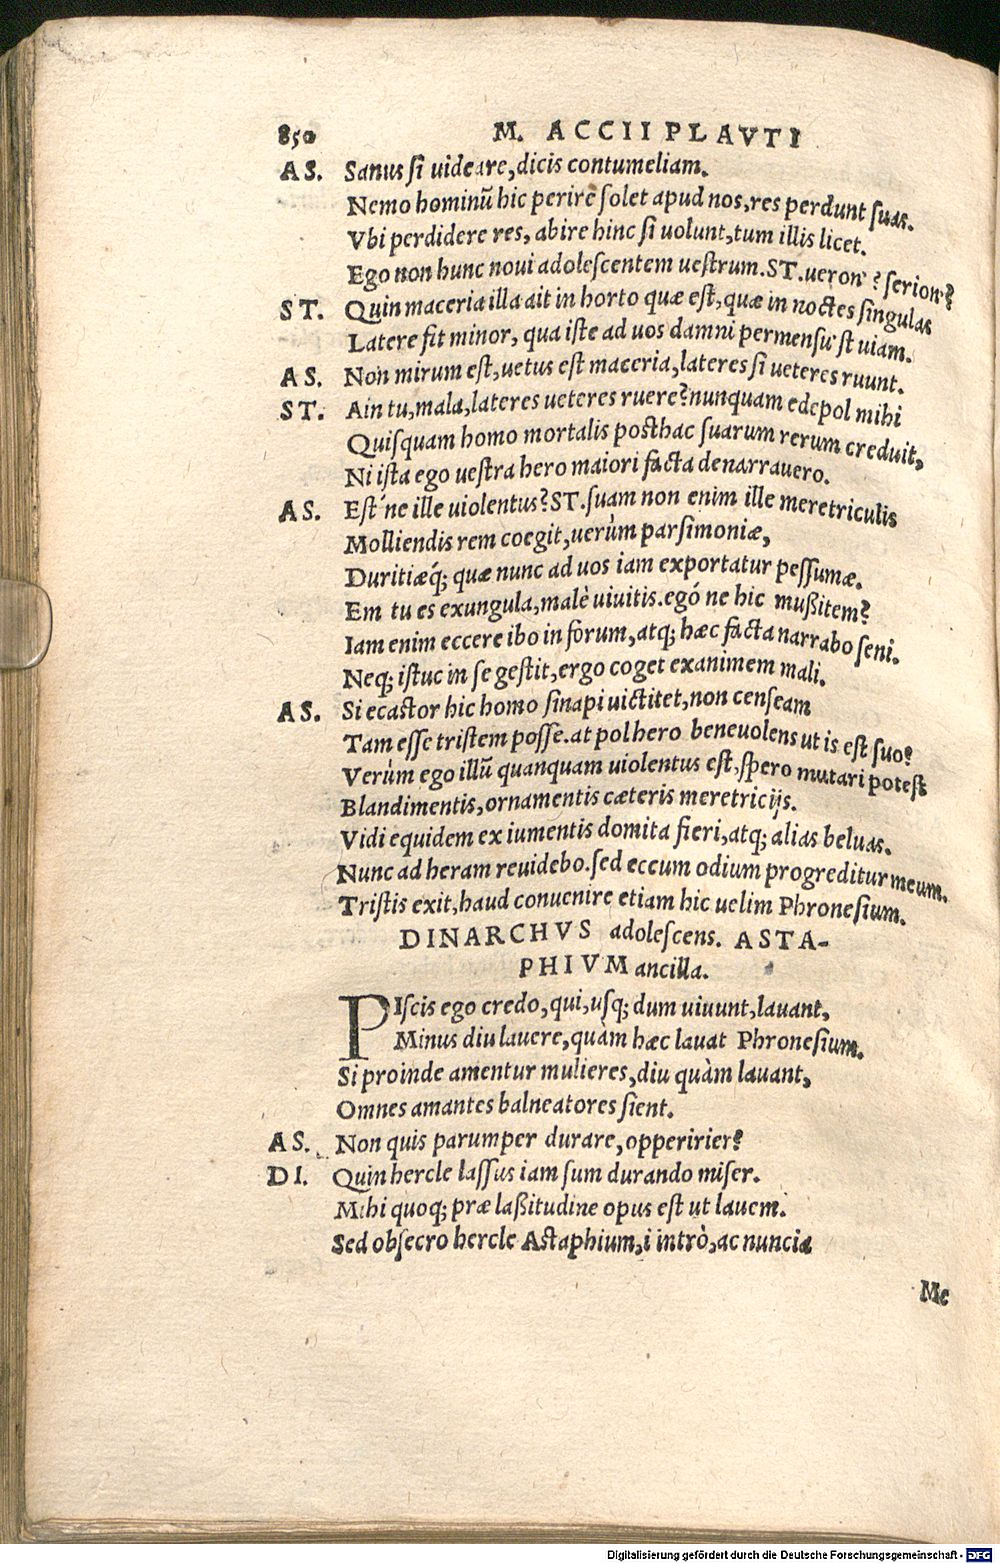 850 M. ACCII PLAVTI
AS. Sanus si uideare, dicis contumeliam.
Nemo hominũ hic perire solet apud nos, res perdunt suas.
Vbi perdidere res, abire hinc si uolunt, tum illis licet.
Ego non hunc noui adolescentem uestrum. ST. ueron'? serion'?
ST. Quin maceria illa ait in horto quæ est, quæ in noctes singulas
Latere fit minor, qua iste ad uos damni permensu'st uiam.
AS. Non mirum est, uetus est maceria, lateres si ueteres ruunt.
ST. Ain tu, mala, lateres ueteres ruere? nunquam edepol mihi
Quisquam homo mortalis posthac suarum rerum creduit,
Ni ista ego uestra hero maiori facta denarrauero.
AS. Est'ne ille uiolentus? ST. suam non enim ille meretriculis
Molliendis rem coegit, uerùm parsimoniæ,
Duritiæq́; quæ nunc ad uos iam exportatur pessumæ.
Em tu es exungula, malè uiuitis. egó ne hic mußitem?
Iam enim eccere ibo in forum, atq; hæc facta narrabo seni.
Neq; istuc in se gestit, ergo coget examinem mali.
AS. Si ecastor hic homo sinapi uictitet, non censeam
Tam esse tristem posse. at pol hero beneuolens ut is est suo?
Verùm ego illũ quanquam uiolentus est, spero mutari potest
Blandimentis, ornamentis cæteris meretricijs.
Vidi equidem ex iumentis domita fieri, atq; alias beluas.
Nunc ad heram reuidebo. sed eccum odium progreditur meum.
Tristis exit, haud conuenire etiam hic uelim Phronesium.
DINARCHVS adolescens. ASTA-
PHIVM ancilla.
PIscis ego credo, qui, usq; dum uiuunt, lauant,
Minus diu lauere, quàm hæc lauat Phronesium.
Si proinde amentur mulieres, diu quàm lauant,
Omnes amantes balneatores sient.
AS. Non quis parumper durare, opperirier?
DI. Quin hercle lassus iam sum durando miser.
Mihi quoq; præ laßitudine opus est ut lauem.
Sed obsecro hercle Astaphium, i intrò, ac nuncia
Me
Digitalisierung gefördert durch die Deutsche Forschungsgemeinschaft - DFG